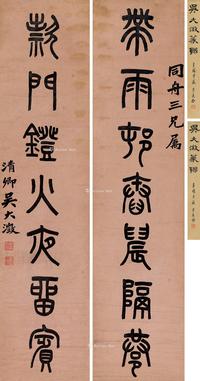 帶雨邨舂晨隔巷
同舟三兄屬
款門鐙火夜畱賓
清卿吳大澂
吳大澂篆聯
吳大澂篆聯